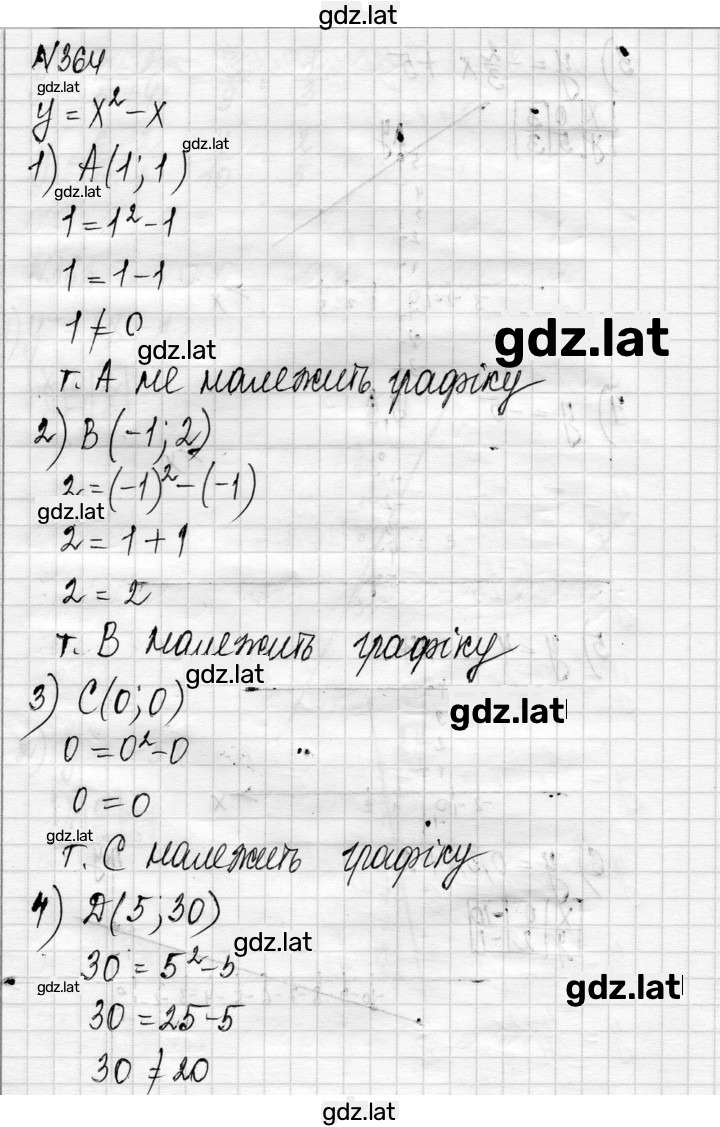 gdz.lat
№364
gdz.lat
y = x² - x
gdz.lat
1) A(1; 1)
gdz.lat
1 = 1² - 1
1 = 1 - 1
1 ≠ 0
gdz.lat
gdz.lat
т. А не належить графіку
2) B(-1; 2)
2 = (-1)² - (-1)
gdz.lat
2 = 1 + 1
2 = 2
т. В належить графіку
gdz.lat
3) C(0; 0)
gdz.lat
0 = 0² - 0
0 = 0
gdz.lat
т. С належить графіку
4) D(5; 30)
gdz.lat
30 = 5² - 5
gdz.lat
gdz.lat
30 = 25 - 5
30 ≠ 20
gdz.lat